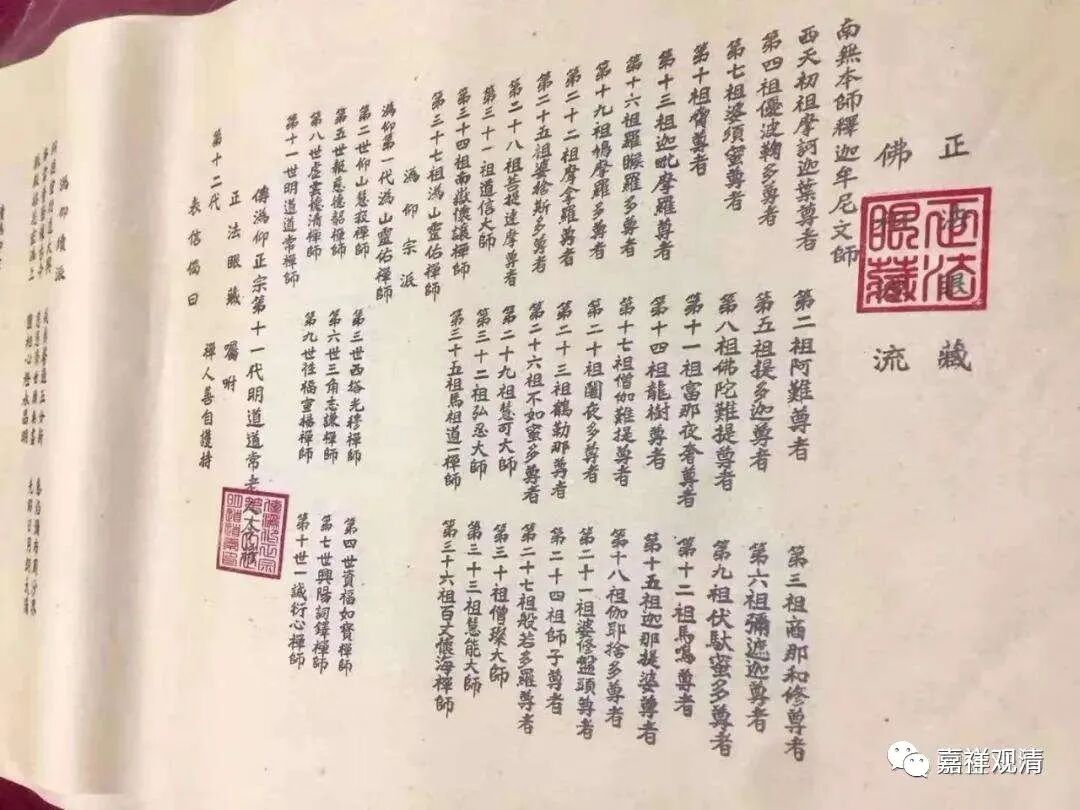 正法眼藏
佛 流
正法眼藏
南無本師釋迦牟尼文師
西天初祖摩訶迦葉尊者 第二祖阿難尊者 第三祖商那和修尊者
第四祖優波鞠多尊者 第五祖提多迦尊者 第六祖彌遮迦尊者
第七祖婆須蜜尊者 第八祖佛陀難提尊者 第九祖伏馱蜜多尊者
第十祖脅尊者 第十一祖富那夜奢尊者 第十二祖馬鳴尊者
第十三祖迦毗摩羅尊者 第十四祖龍樹尊者 第十五祖迦那提婆尊者
第十六祖羅睺羅多尊者 第十七祖僧伽難提尊者 第十八祖伽耶捨多尊者
第十九祖鳩摩羅多尊者 第二十祖闍夜多尊者 第二十一祖婆修盤頭尊者
第二十二祖摩拿羅尊者 第二十三祖鶴勒那尊者 第二十四祖師子尊者
第二十五祖婆捨斯多尊者 第二十六祖不如蜜多尊者 第二十七祖般若多羅尊者
第二十八祖菩提達摩尊者 第二十九祖慧可大師 第三十祖僧璨大師
第三十一祖道信大師 第三十二祖弘忍大師 第三十三祖慧能大師
第三十四祖南嶽懷讓禪師 第三十五祖馬祖道一禪師 第三十六祖百丈懷海禪師
第三十七祖溈山靈佑禪師
溈仰宗派
溈仰第一代溈山靈佑禪師
第二世仰山慧寂禪師 第三世西塔光穆禪師 第四世資福如寶禪師
第五世報慈德韶禪師 第六世三角志謙禪師 第七世興陽詞鐸禪師
第八世虛雲德清禪師 第九世性福宣揚禪師 第十世一誠衍心禪師
第十一世明道道常禪師
傳溈仰正宗第十一代明道道常老
正法眼藏 囑咐
第十二代 禪人善自護持
表信偈曰
溈仰續派
嘉祥观清